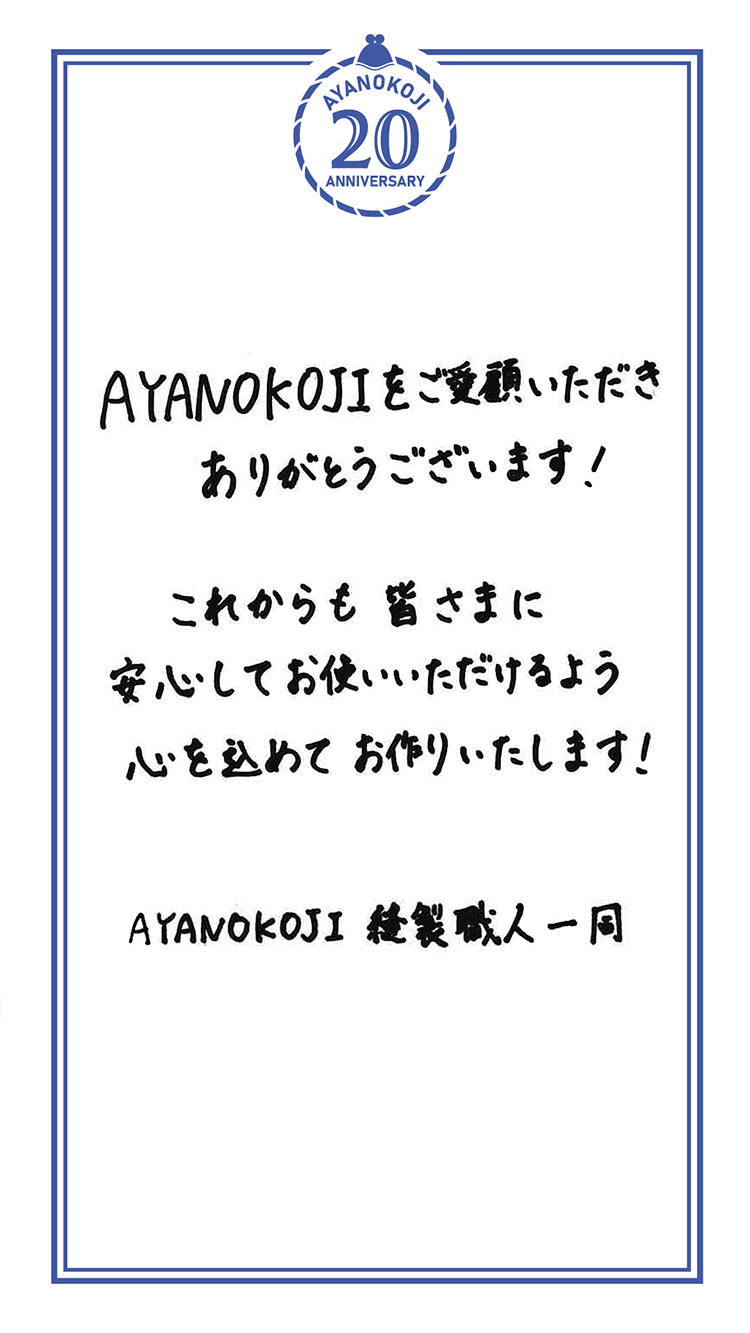 AYANOKOJI
20
ANNIVERSARY
AYANOKOJIをご愛顧いただき
ありがとうございます！
これからも 皆さまに
安心してお使いいただけるよう
心を込めて お作りいたします！
AYANOKOJI 縫製職人一同